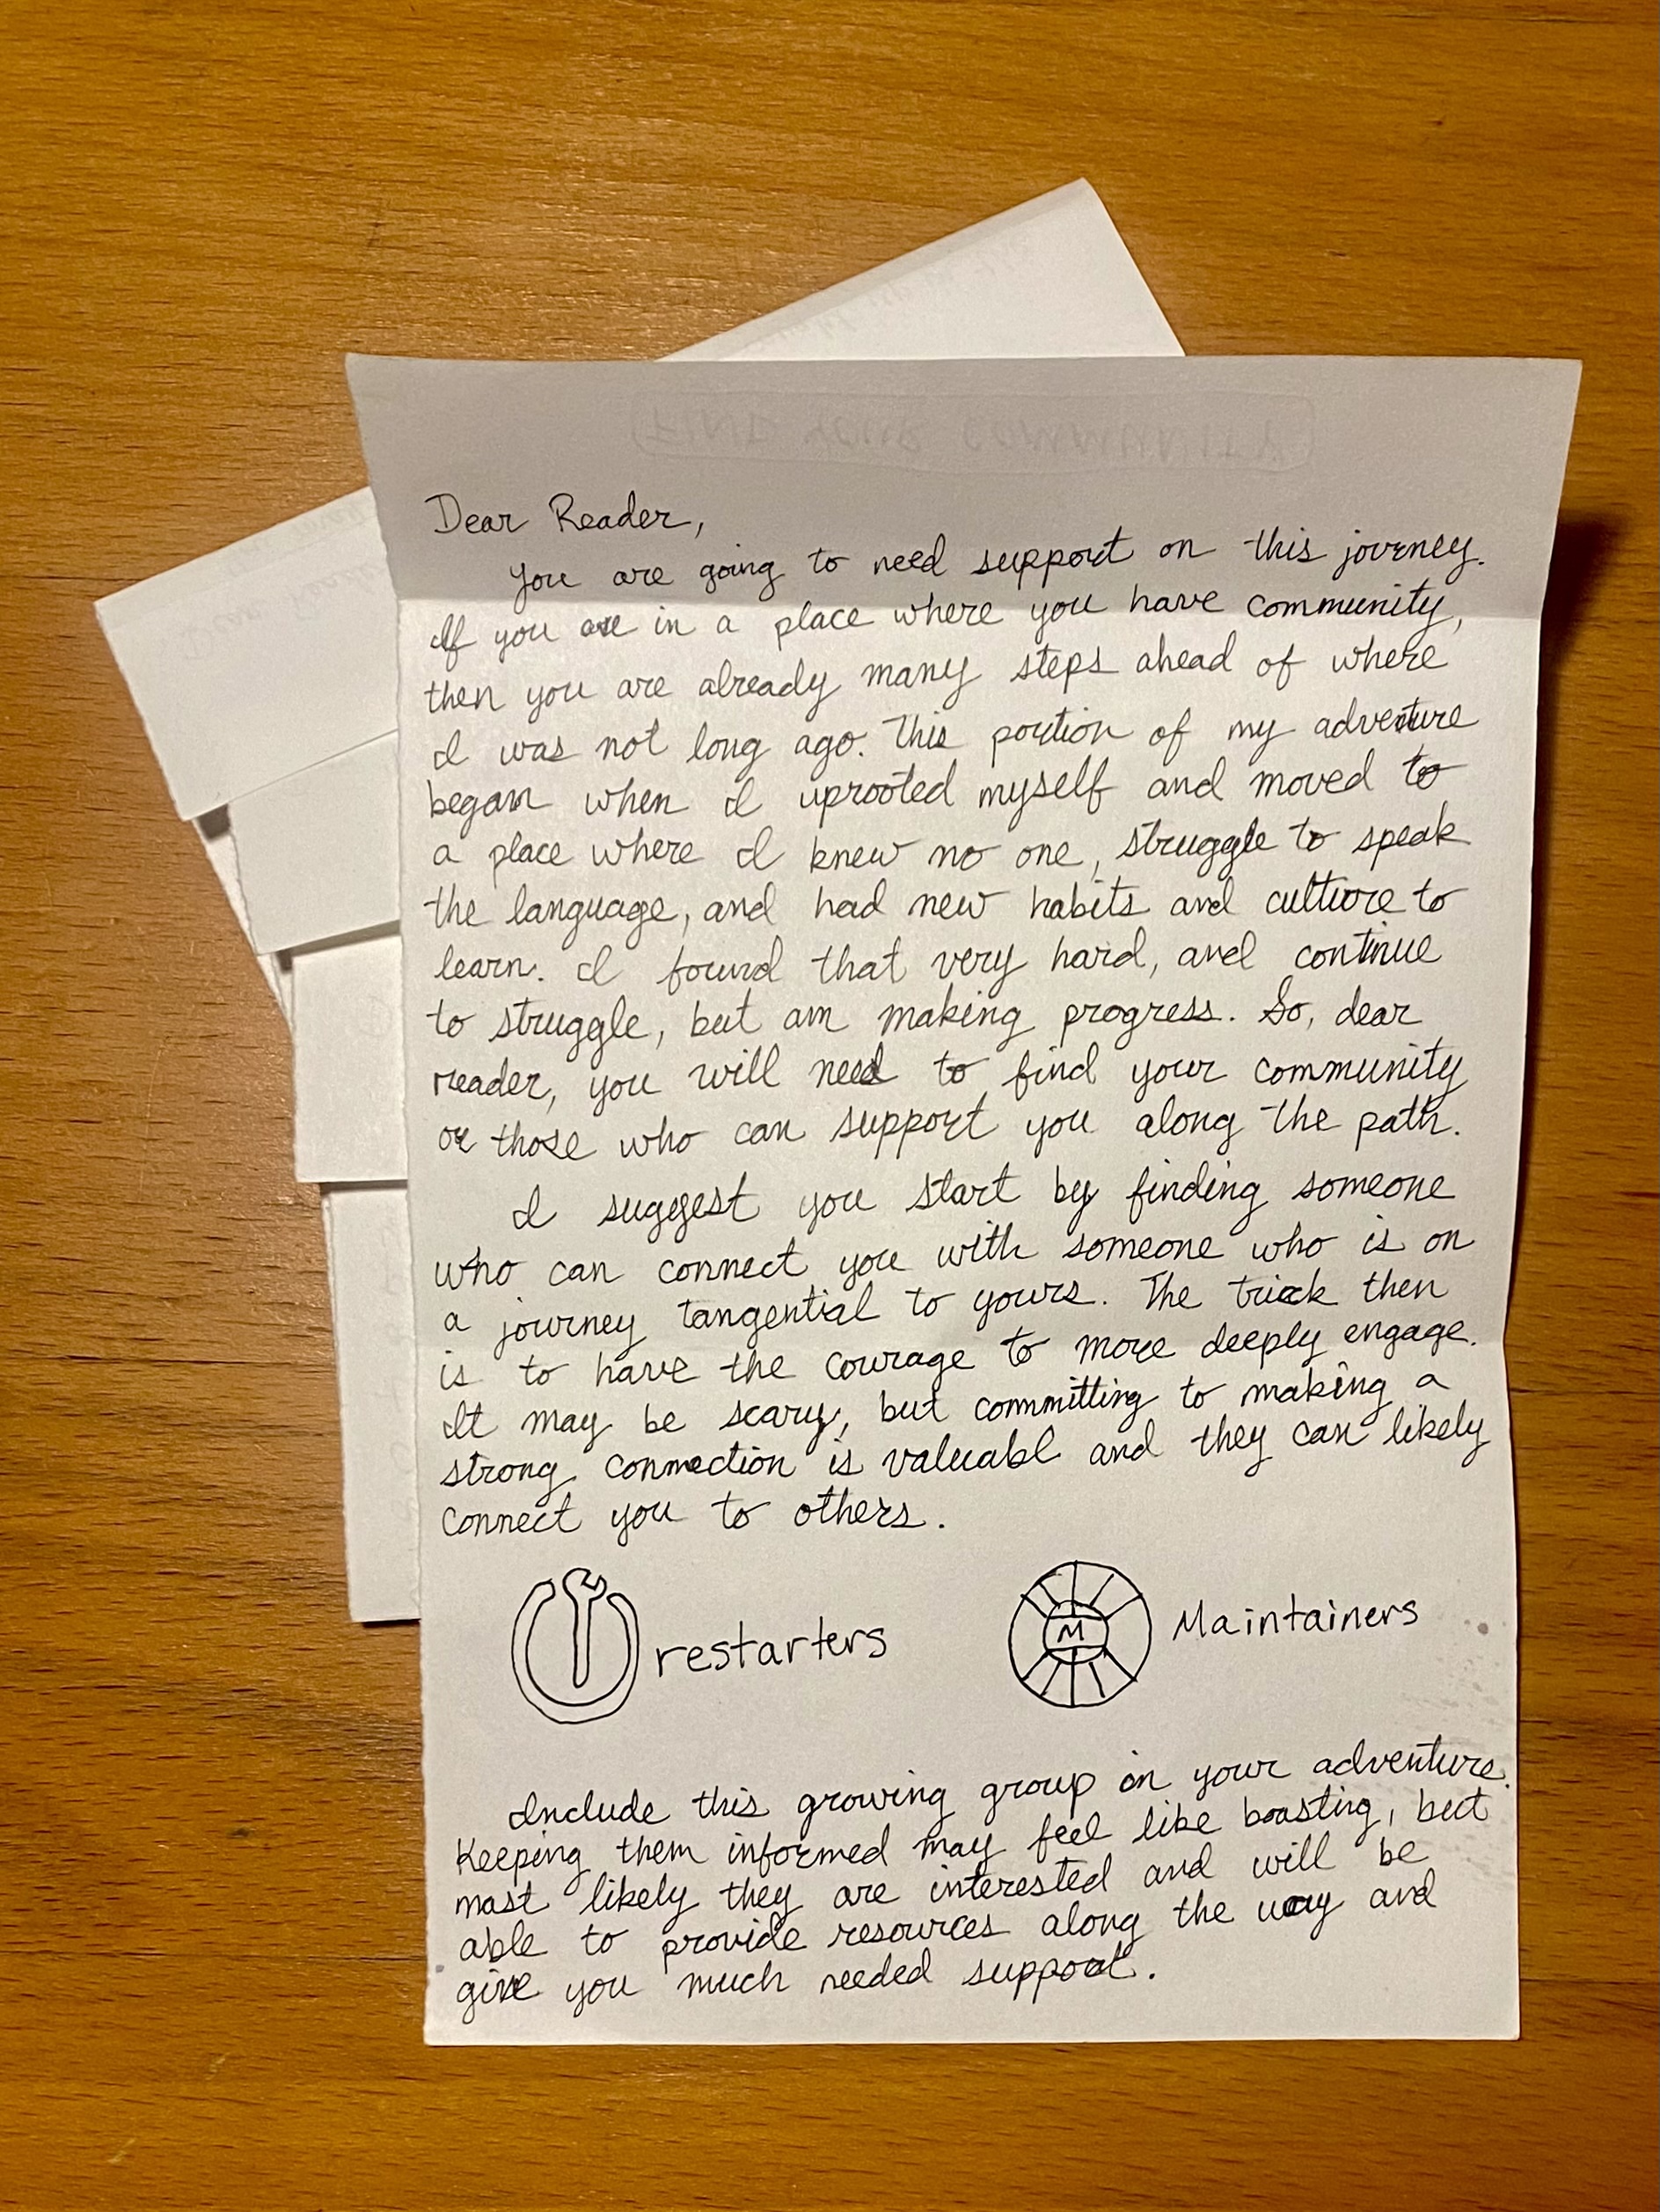 FIND YOUR COMMUNITY
Dear Reader,
you are going to need support on this journey.
If you are in a place where you have community,
then you are already many steps ahead of where
I was not long ago. This portion of my adventure
began when I uprooted myself and moved to
a place where I knew no one, struggle to speak
the language, and had new habits and culture to
learn. I found that very hard, and continue
to struggle, but am making progress. So, dear
reader, you will need to find your community
or those who can support you along the path.
I suggest you start by finding someone
who can connect you with someone who is on
a journey tangential to yours. The trick then
is to have the courage to more deeply engage.
It may be scary, but committing to making a
strong connection is valuabl and they can likely
connect you to others.
restarters
M Maintainers
Include this growing group on your adventure.
Keeping them informed may feel like boasting, but
most likely they are interested and will be
able to provide resources along the way and
give you much needed support.